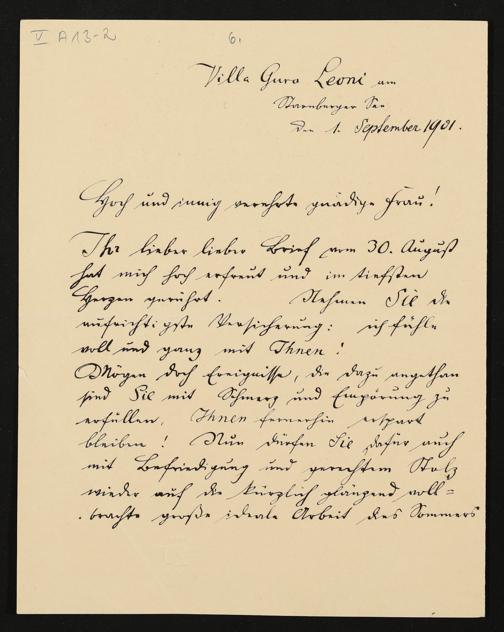 V A 13-2
6.
Villa Guro Leoni am
Starnberger See
den 1. September 1901.
Hoch und innig verehrte gnädige Frau!
Ihr lieber lieber Brief vom 30. August
hat mich hoch erfreut und im tiefsten
Herzen gerührt. Nehmen Sie die
aufrichtigste Versicherung: ich fühle
voll und ganz mit Ihnen!
Mögen doch Ereignisse, die dazu angethan
sind Sie mit Schmerz und Empörung zu
erfüllen, Ihnen fernerhin erspart
bleiben! Nun dürfen Sie dafür auch
mit Befriedigung und gerechtem Stolz
wieder auf die kürzlich glänzend voll=
brachte große ideale Arbeit des Sommers